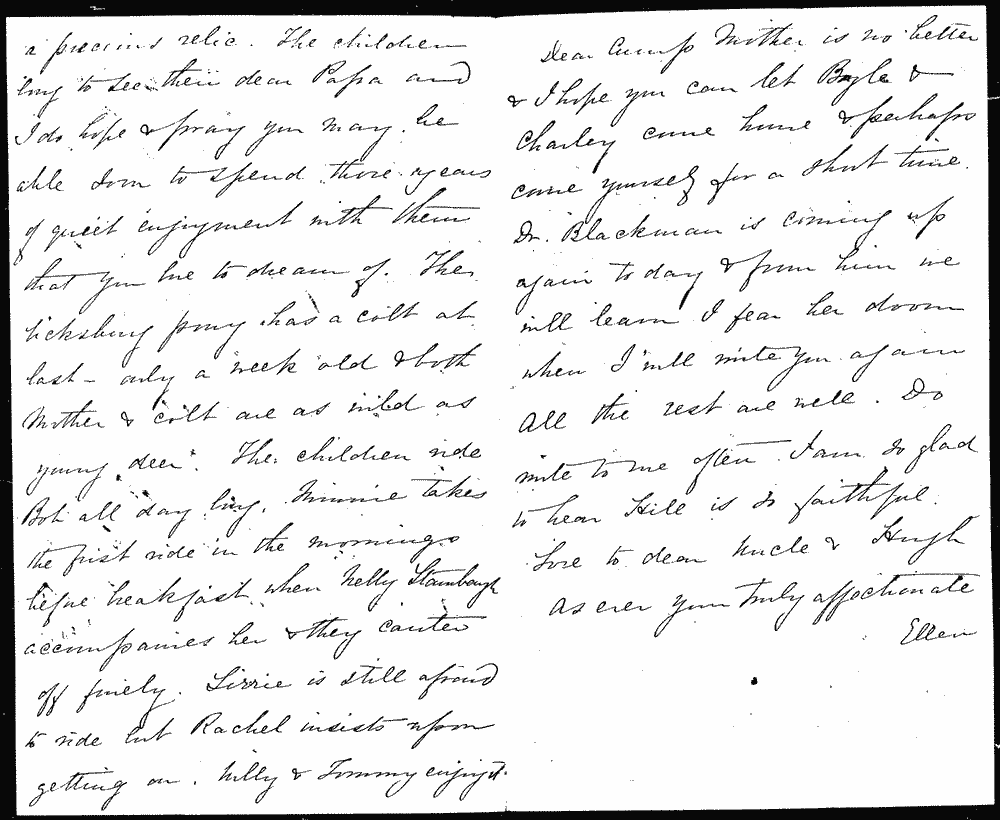 a precious relic. The children
long to see their dear Papa and
I do hope & pray you may be
able soon to spend those years
of quiet enjoyment with them
that you love to dream of. The
Vicksburg pony has a colt at
last - only a week old & both
Mother & colt are as wild as
young deer. The children ride
Bob all day long. Minnie takes
the first ride in the mornings
before breakfast when Nelly Stambaugh
accompanies her & they canter
off finely. Lizzie is still afraid
to ride but Rachel insists upon
getting on. Willy & Tommy enjoy it.
Dear Cump Mother is no better
& I hope you can let Boyle &
Charley come home & perhaps
come yourself for a short time.
Dr. Blackman is coming up
again to day & from him we
will learn I fear her doom
when I will write you again
All the rest are well. Do
write to me often. I am so glad
to hear Hill is so faithful.
Love to dear Uncle & Hugh
As ever your truly affectionate
Ellen